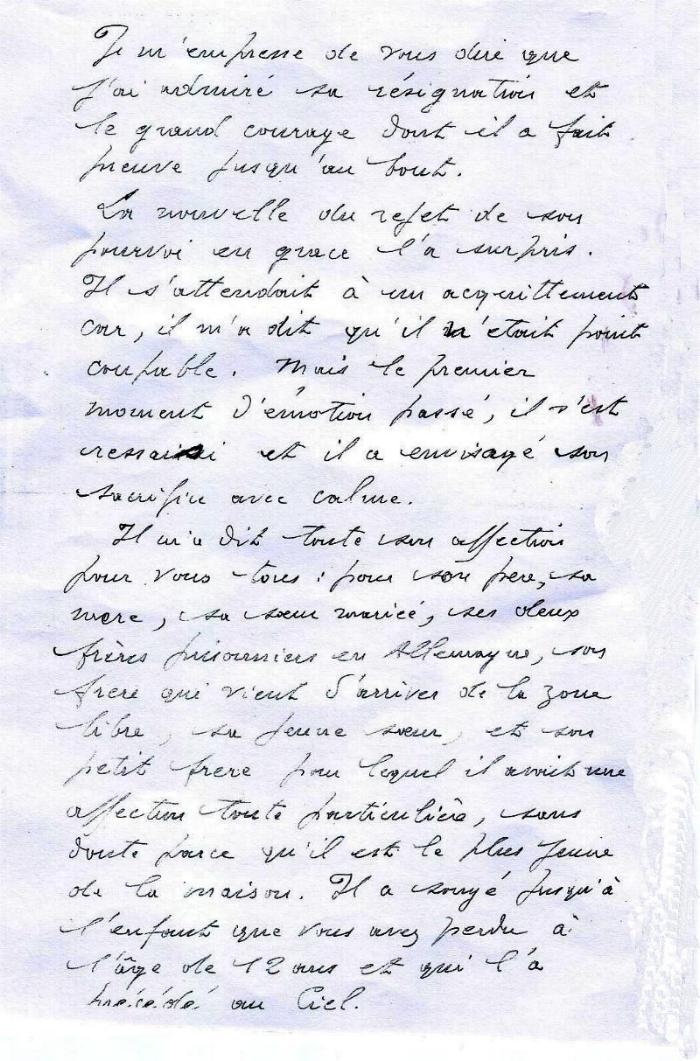 Je m'empresse de vous dire que
j'ai admiré sa résignation et
le grand courage dont il a fait
preuve jusqu'au bout.
La nouvelle du rejet de son
pourvoi en grace l'a surpris.
Il s'attendait à un acquittement
car, il m'a dit qu'il n'était point
coupable. Mais le premier
moment d'émotion passé, il s'est
ressaisi et il a envisagé son
sacrifice avec calme.
Il m'a dit toute son affection
pour vous tous : pour son père, sa
mere, sa sœur mariée, ses deux
frères prisonniers en Allemagne, son
frere qui vient d'arriver de la zone
libre, sa jeune sœur, et son
petit frere pour lequel il avait une
affection toute particulière, sans
doute parce qu'il est le plus jeune
de la maison. Il a songé jusqu'à
l'enfant que vous avez perdu à
l'âge de 12 ans et qui l'a
précédé au Ciel.